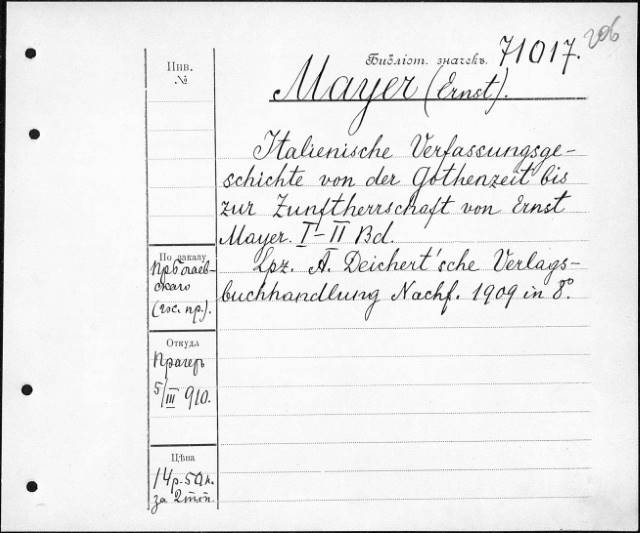 206
Библіот. значекъ. 71017.
Инв.
№
Mayer (Ernst).
Italienische Verfassungsge-
schichte von der Gothenzeit bis
zur Zunftherrschaft von Ernst
Mayer. I-II Bd.
Lpz. A. Deichert'sche Verlags-
buchhandlung Nachf. 1909 in 8º.
По заказу
скаго
(гос. пр.).
Откуда
Прагеръ
5/III 910.
Цѣна
14р.-50к.
за 2 тт.